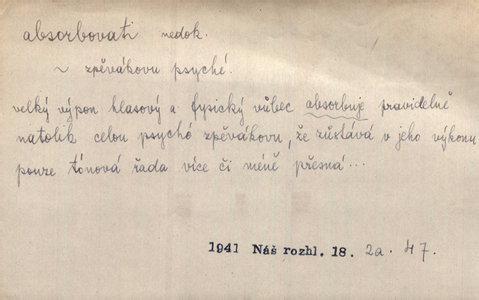 absorbovati nedok.
~ zpěvákovu psyché.
velký výpon hlasový a fysický vůbec absorbuje pravidelně
natolik celou psyché zpěvákovu, že zůstává v jeho výkonu
pouze tónová řada více či méně přesná...
1941 Náš rozhl. 18. 2a. 47.